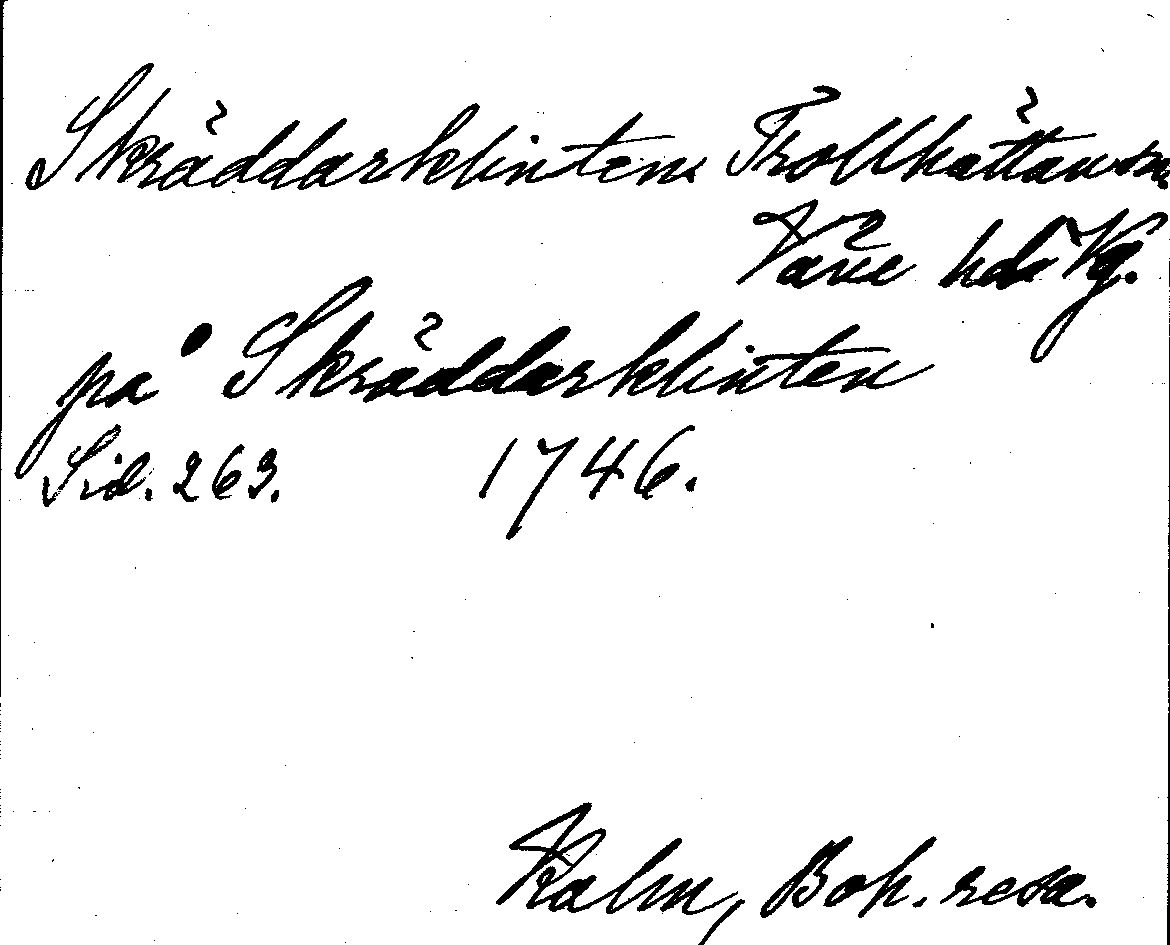 Skräddarklinten Trollhättan sn.
Väne hd Vg.
på Skräddarklinten
Sid. 263. 1746.
Kalm, Boh. resa.